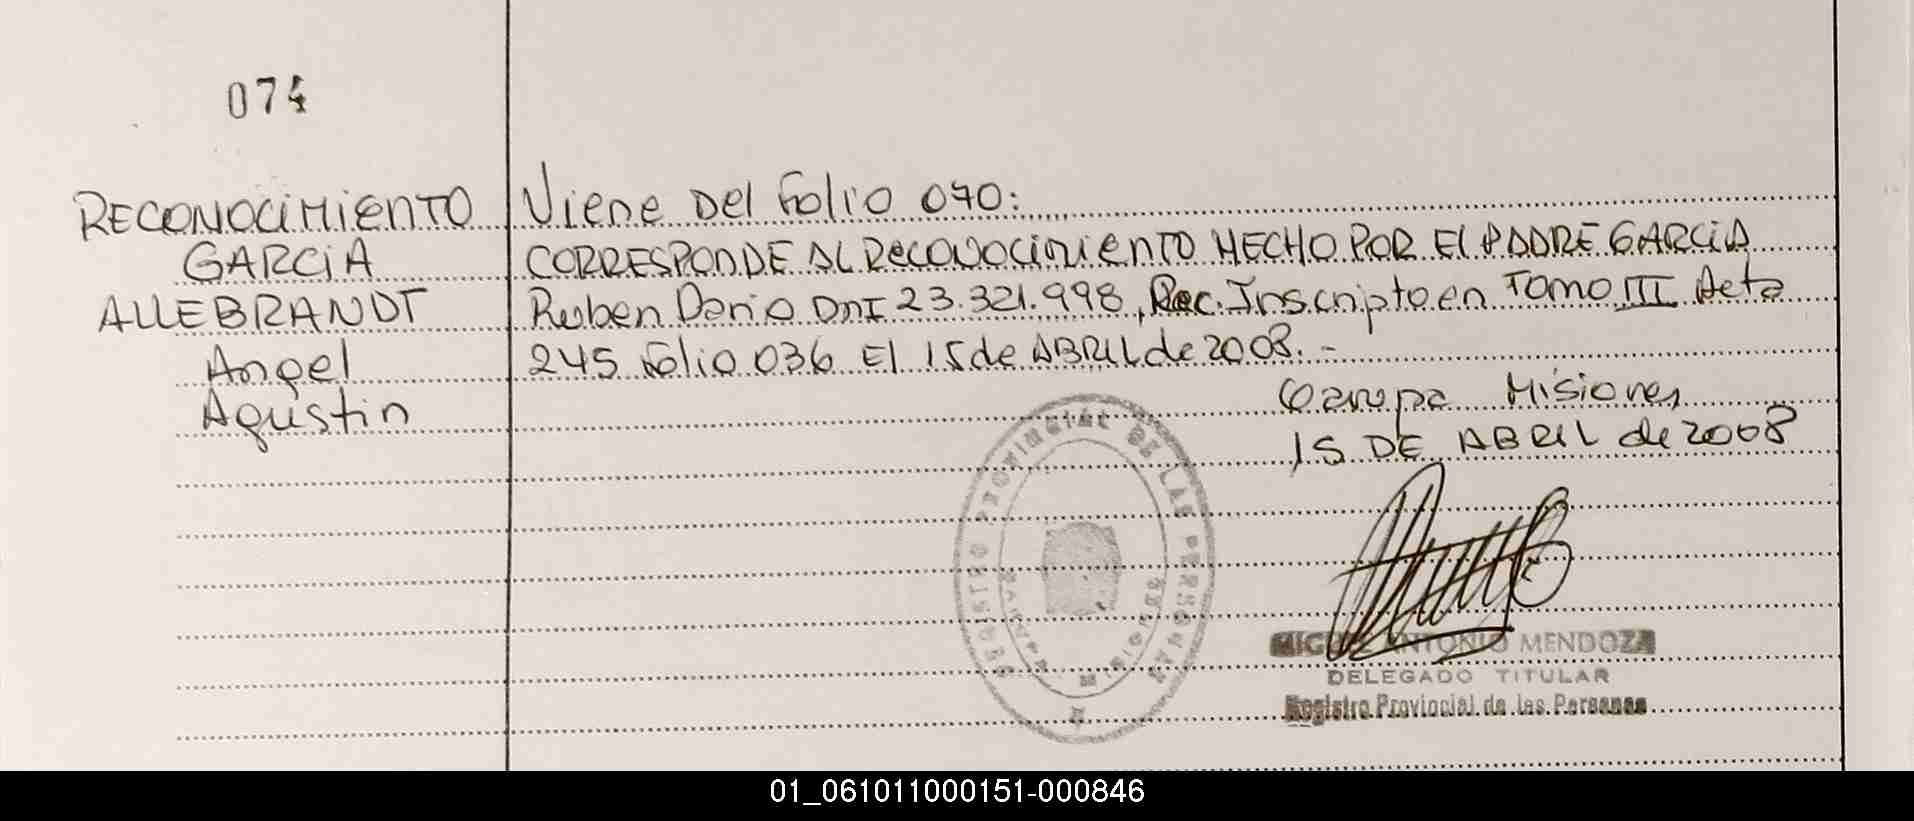 074
RECONOCIMIENTO
GARCIA
ALLEBRANDT
Angel
Agustin
Viene Del Folio 070:
CORRESPONDE AL RECONOCIMIENTO HECHO POR El PADRE GARCIA
Ruben Dario DnI 23.321.998, Rec. Inscripto en Tomo III Acta
245 Folio 036 El 15 de ABRIL de 2008. -
Garupa Misiones
15 DE ABRIL de 2008
REGISTRO PROVINCIAL DE LAS PERSONAS
MIGUEL ANTONIO MENDOZA
DELEGADO TITULAR
Registro Provincial de las Personas
01_061011000151-000846